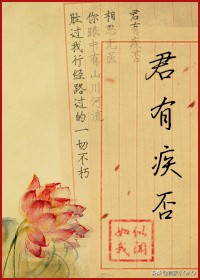 君有疾否
君有疾否
相思无医
你眼中有山川河流
胜过我行经路过的一切不朽
如似我闻